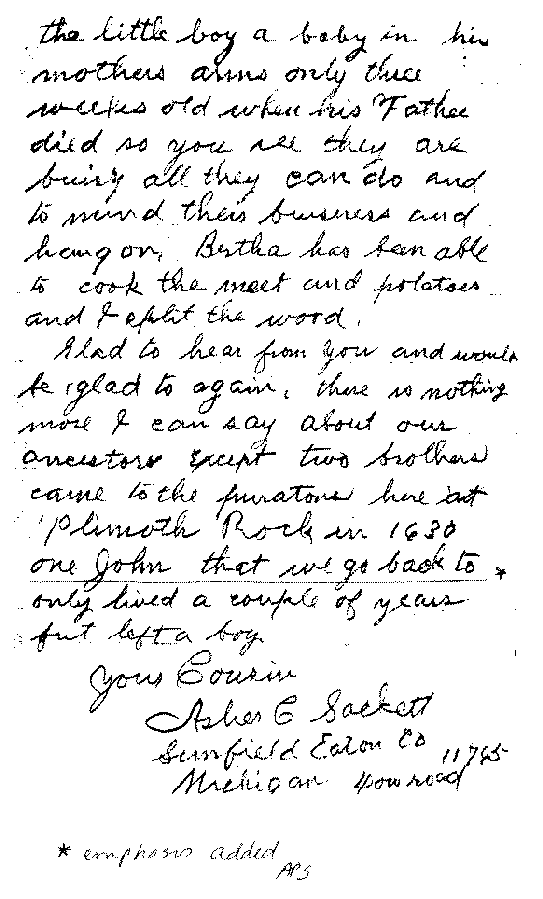 the little boy a baby in his
mothers arms only three
weeks old when his Father
died so you see they are
buisy all they can do and
to mind their buiseness and
hang on, Bertha has been able
to cook the meet and potatoes
and I split the wood.
Glad to hear from you and would
be glad to again, there is nothing
more I can say about our
ancestors except two brothers
came to the puratons here at
Plimoth Rock in 1630
one John that we go back to *
only lived a couple of years
but left a boy.
Your Cousin
Asher C Sackett
Sunfield Eaton Co 11765
Michigan Dow road
* emphasis added
APS